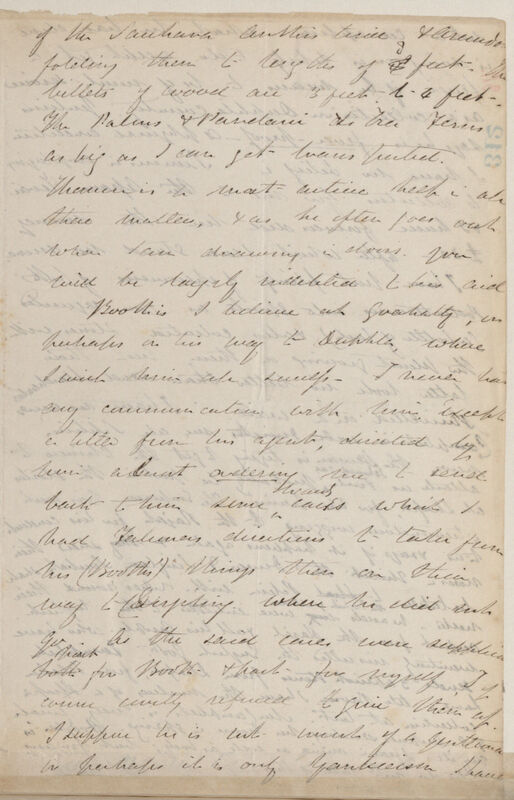 of the Saccharum another kind & Arundo
folding them to lengths of 3 feet. The
billets of wood are 3 feet to 4 feet.
The Palms & Pandani & Tree Ferns
as big as I can get transported.
Thomson is a most active help in all
these matters, & as he often goes out
when I am drawing indoors you
will be largely indebted to his aid
Booth is I believe at Gowhatty, or
perhaps on his way to Duphla, where
I wish him all success. I never had
any communication with him except
a letter from his agent, directed by
him about ordering me to send
back to him some Wards cases which I
had Falconers directions to take from
his (Booth's) things then on their
way to Darjiling where he did not
go. As the said cases were supplied
part for Booth & part for myself I of
course civilly refused to give them up.
I suppose he is not much of a gentleman
or perhaps it is only Yankeeism I have
312